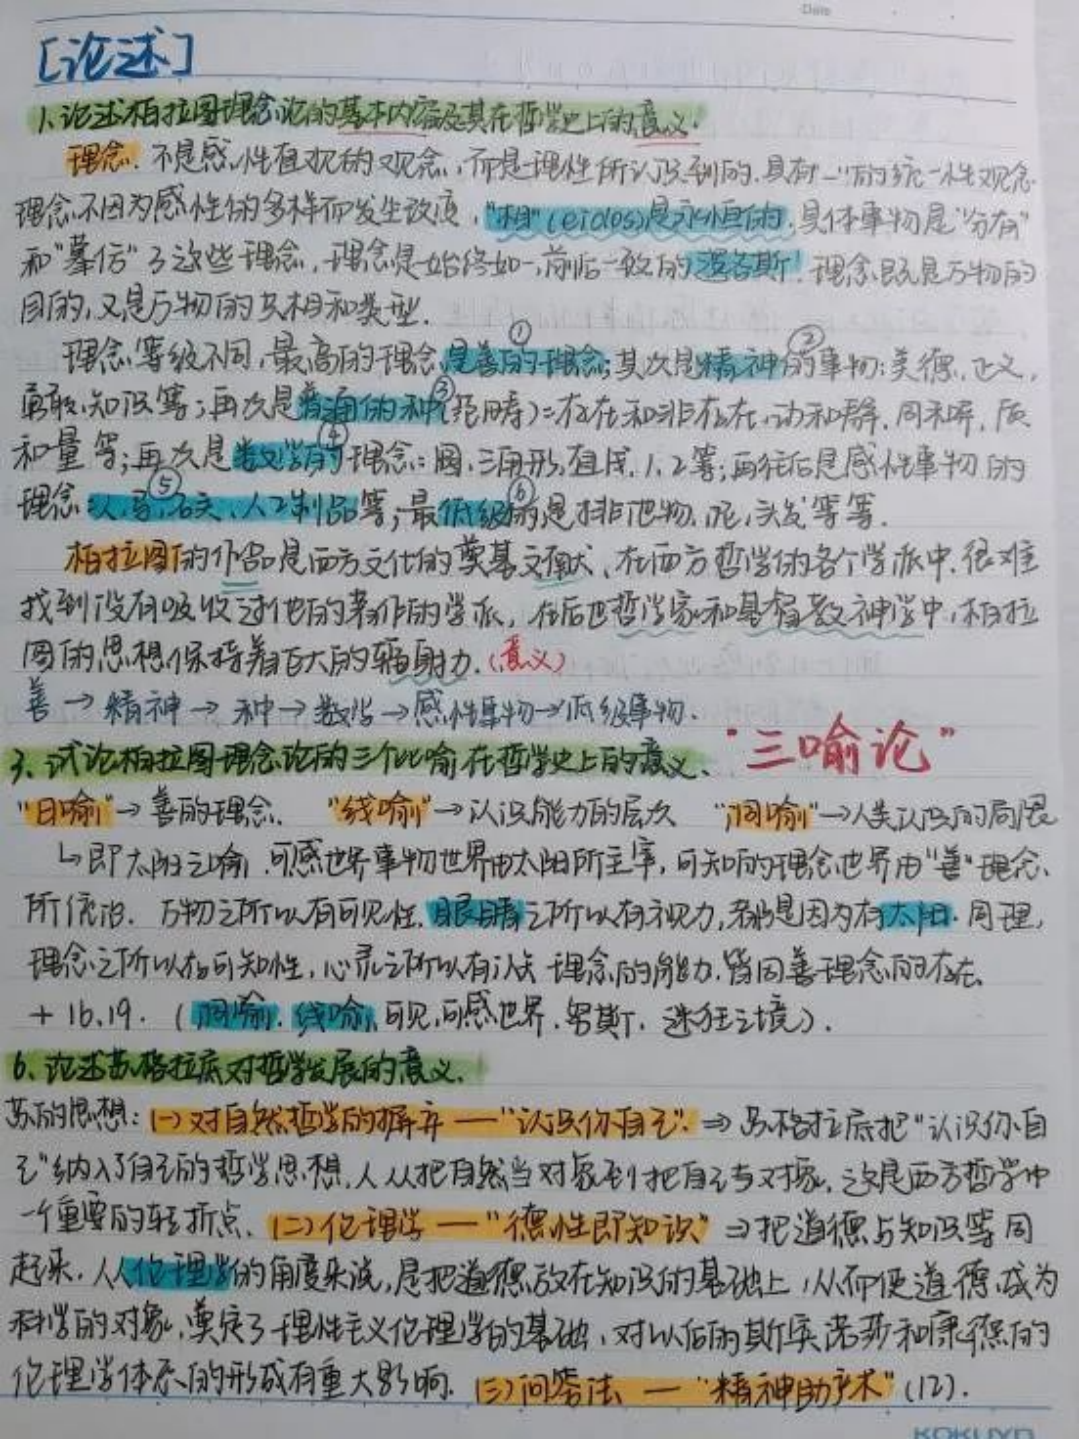 Date
[论述]
1、论述柏拉图理念论的基本内容及其在哲学史上的意义.
理念.不是感性直观的观念,而是理性所认识到的.具有一的统一性观念
理念不因为感性的多样而发生改变,"相"(eidos)是永恒的.具体事物是"分有"
和"摹仿"了这些理念,理念是始终如一,前后一致的逻各斯!理念既是万物的
目的,又是万物的共相和类型.
理念等级不同,最高的理念是善的①理念;其次是精神的②事物:美德、正义,
勇敢、知识等;再次是普通的种③(范畴):存在和非存在、动和静、同和异、质
和量等;再次是数学的④理念:圆、三角形、直线、1、2等;再往后是感性事物的
理念⑤:人、马、石头、人工制品等;最低级的⑥是排泄物、泥、头发等等.
柏拉图的作品是西方文化的奠基文献、在西方哲学的各个学派中.很难
找到没有吸收过他的著作的学派,在后世哲学家和基督教神学中,柏拉
图的思想保持着巨大的辐射力.(意义)
善→精神→种→数学→感性事物→低级事物.
3、试论柏拉图理念论的三个比喻在哲学史上的意义、"三喻论"
"日喻"→善的理念. "线喻"→认识能力的层次 "洞喻"→人类认识的局限
↳即太阳之喻.可感世界事物世界由太阳所主宰,可知的理念世界由"善"理念、
所统治.万物之所以有可见性.眼睛之所以有视力,都是因为有太阳.同理,
理念之所以有可知性,心灵之所以有认点理念的能力.皆因善理念的存在.
+16、19.(洞喻.线喻,可见,可感世界.努斯.迷狂之境).
6、论述苏格拉底对哲学发展的意义.
苏的思想:(一)对自然哲学的摒弃—"认识你自己".⇒苏格拉底把"认识你自
己"纳入了自己的哲学思想.人从把自然当对象到把自己当对象.这是西方哲学中
一个重要的转折点.(二)伦理学—"德性即知识"⇒把道德与知识等同
起来.人从伦理学的角度来说,是把道德放在知识的基础上,从而使道德成为
科学的对象,奠定了理性主义伦理学的基础,对以后的斯宾诺莎和康德的
伦理学体系的形成有重大影响.(三)问答法—"精神助产术"(12).
KOKUYO